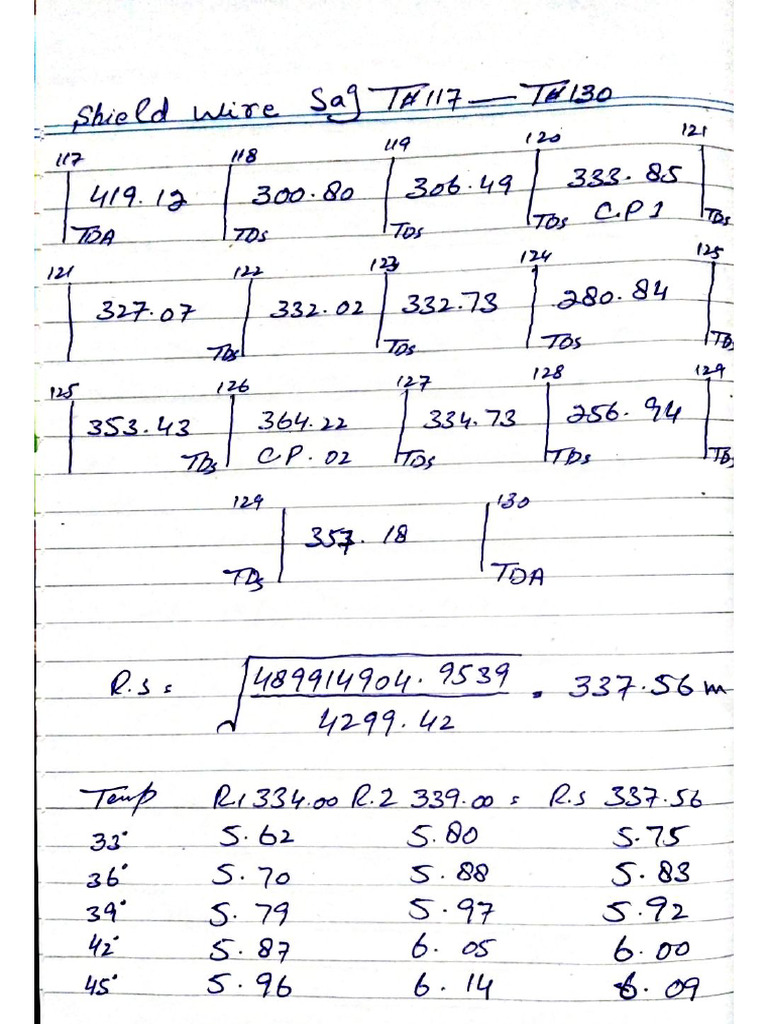 Shield wire Sag T#117 — T#130
117 118 119 120 121
419.12 300.80 306.49 333.85
TDA TDs TDs TDs C.P 1 TDs
121 122 123 124 125
327.07 332.02 332.73 280.84
TDs TDs TDs TDs
125 126 127 128 129
353.43 364.22 334.73 256.94
TDs C.P. 02 TDs TDs TDs
129 130
357.18
TDs TDA
R.S = √ 489914904.9539 = 337.56 m
4299.42
Temp R.1 334.00 R.2 339.00 = R.S 337.56
33° 5.62 5.80 5.75
36° 5.70 5.88 5.83
39° 5.79 5.97 5.92
42° 5.87 6.05 6.00
45° 5.96 6.14 6.09